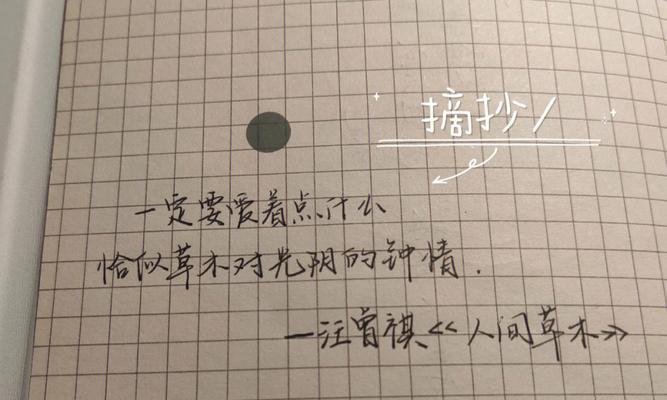 摘抄/
一定要爱着点什么
恰似草木对光阴的钟情.
一汪曾祺<<人间草木>>